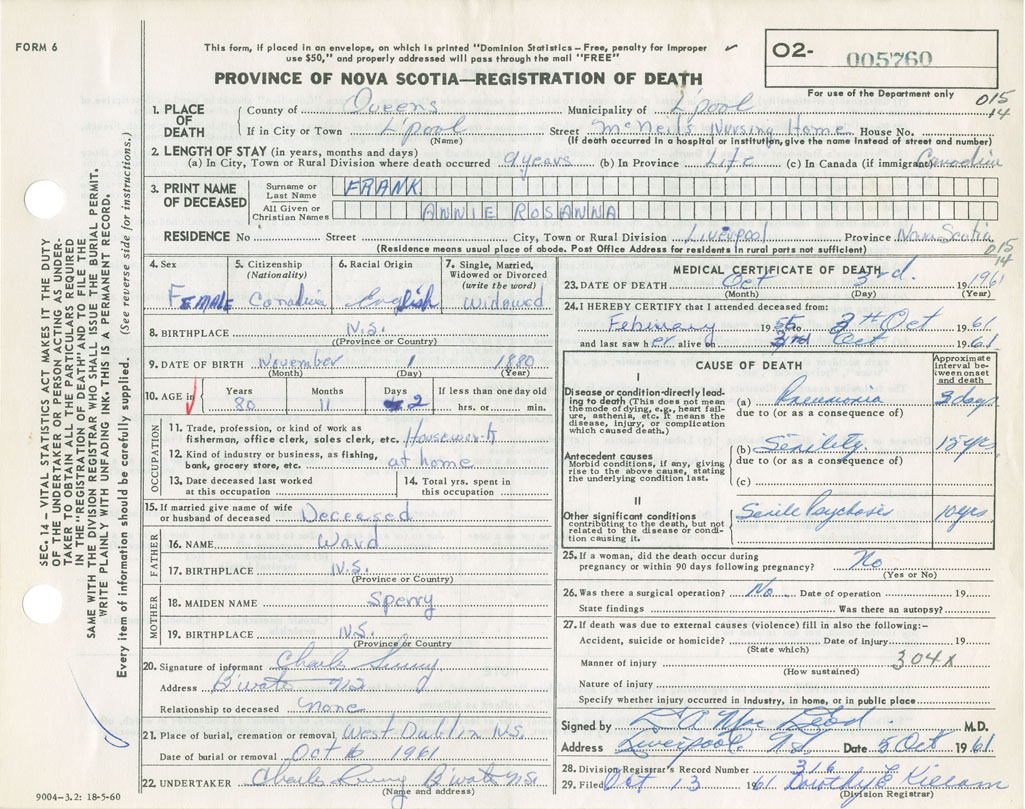 FORM 6
This form, if placed in an envelope, on which is printed "Dominion Statistics – Free, penalty for improper
use $50," and properly addressed will pass through the mail "FREE"
O2- 005760
For use of the Department only
PROVINCE OF NOVA SCOTIA—REGISTRATION OF DEATH
015
14
1. PLACE OF DEATH
County of Queens Municipality of L'pool
If in City or Town L'pool Street McNeil's Nursing Home House No.
(Name) (If death occurred in a hospital or institution, give the name instead of street and number)
2. LENGTH OF STAY (in years, months and days)
(a) In City, Town or Rural Division where death occurred 9 years (b) In Province Life (c) In Canada (if immigrant) Canadian
3. PRINT NAME OF DECEASED
Surname or Last Name FRANK
All Given or Christian Names ANNIE ROSANNA
RESIDENCE No Street City, Town or Rural Division Liverpool Province Nova Scotia
(Residence means usual place of abode. Post Office Address for residents in rural parts not sufficient)
015
14
4. Sex Female
5. Citizenship (Nationality) Canadian
6. Racial Origin English
7. Single, Married, Widowed or Divorced (write the word) Widowed
8. BIRTHPLACE N.S.
(Province or Country)
9. DATE OF BIRTH November 1 1880
(Month) (Day) (Year)
10. AGE in Years 80 Months 11 Days 2 If less than one day old hrs. or min.
OCCUPATION
11. Trade, profession, or kind of work as
fisherman, office clerk, sales clerk, etc. Housework
12. Kind of industry or business, as fishing,
bank, grocery store, etc. at home
13. Date deceased last worked
at this occupation
14. Total yrs. spent in
this occupation
15. If married give name of wife
or husband of deceased Deceased
FATHER
16. NAME Ward
17. BIRTHPLACE N.S.
(Province or Country)
MOTHER
18. MAIDEN NAME Sperry
19. BIRTHPLACE N.S.
(Province or Country)
20. Signature of informant Charles
Address B'water NS
Relationship to deceased none
21. Place of burial, cremation or removal West Dublin N.S.
Date of burial or removal Oct 6 1961
22. UNDERTAKER Charles B'water NS
(Name and address)
9004-3.2: 18-5-60
MEDICAL CERTIFICATE OF DEATH
23. DATE OF DEATH Oct 3rd. 1961
(Month) (Day) (Year)
24. I HEREBY CERTIFY that I attended deceased from:
February 1955 to 3rd Oct 1961
and last saw her alive on 3rd Oct 1961
CAUSE OF DEATH
Approximate interval between onset and death
I
Disease or condition directly leading
to death (This does not mean
the mode of dying, e.g., heart failure,
asthenia, etc. It means the
disease, injury, or complication
which caused death.)
(a) Pneumonia 3 days
due to (or as a consequence of)
Antecedent causes
Morbid conditions, if any, giving
rise to the above cause, stating
the underlying condition last.
(b) Senility 15 yrs
due to (or as a consequence of)
(c)
II
Other significant conditions
contributing to the death, but not
related to the disease or condition
causing it.
Senile Psychosis 10 yrs
25. If a woman, did the death occur during
pregnancy or within 90 days following pregnancy? No
(Yes or No)
26. Was there a surgical operation? No Date of operation 19
State findings Was there an autopsy?
27. If death was due to external causes (violence) fill in also the following:-
Accident, suicide or homicide? Date of injury 19
(State which)
Manner of injury 304X
(How sustained)
Nature of injury
Specify whether injury occurred in industry, in home, or in public place
Signed by MacLeod M.D.
Address Liverpool NS Date 5 Oct 1961
28. Division Registrar's Record Number 316
29. Filed Oct 13 1961 Dorothy E Killam
(Division Registrar)
SEC. 14 – VITAL STATISTICS ACT MAKES IT THE DUTY
OF THE UNDERTAKER OR PERSON ACTING AS UNDERTAKER
TO OBTAIN ALL THE PARTICULARS REQUIRED
IN THE "REGISTRATION OF DEATH" AND TO FILE THE
SAME WITH THE DIVISION REGISTRAR WHO SHALL ISSUE THE BURIAL PERMIT.
WRITE PLAINLY WITH UNFADING INK. THIS IS A PERMANENT RECORD.
Every item of information should be carefully supplied. (See reverse side for instructions.)